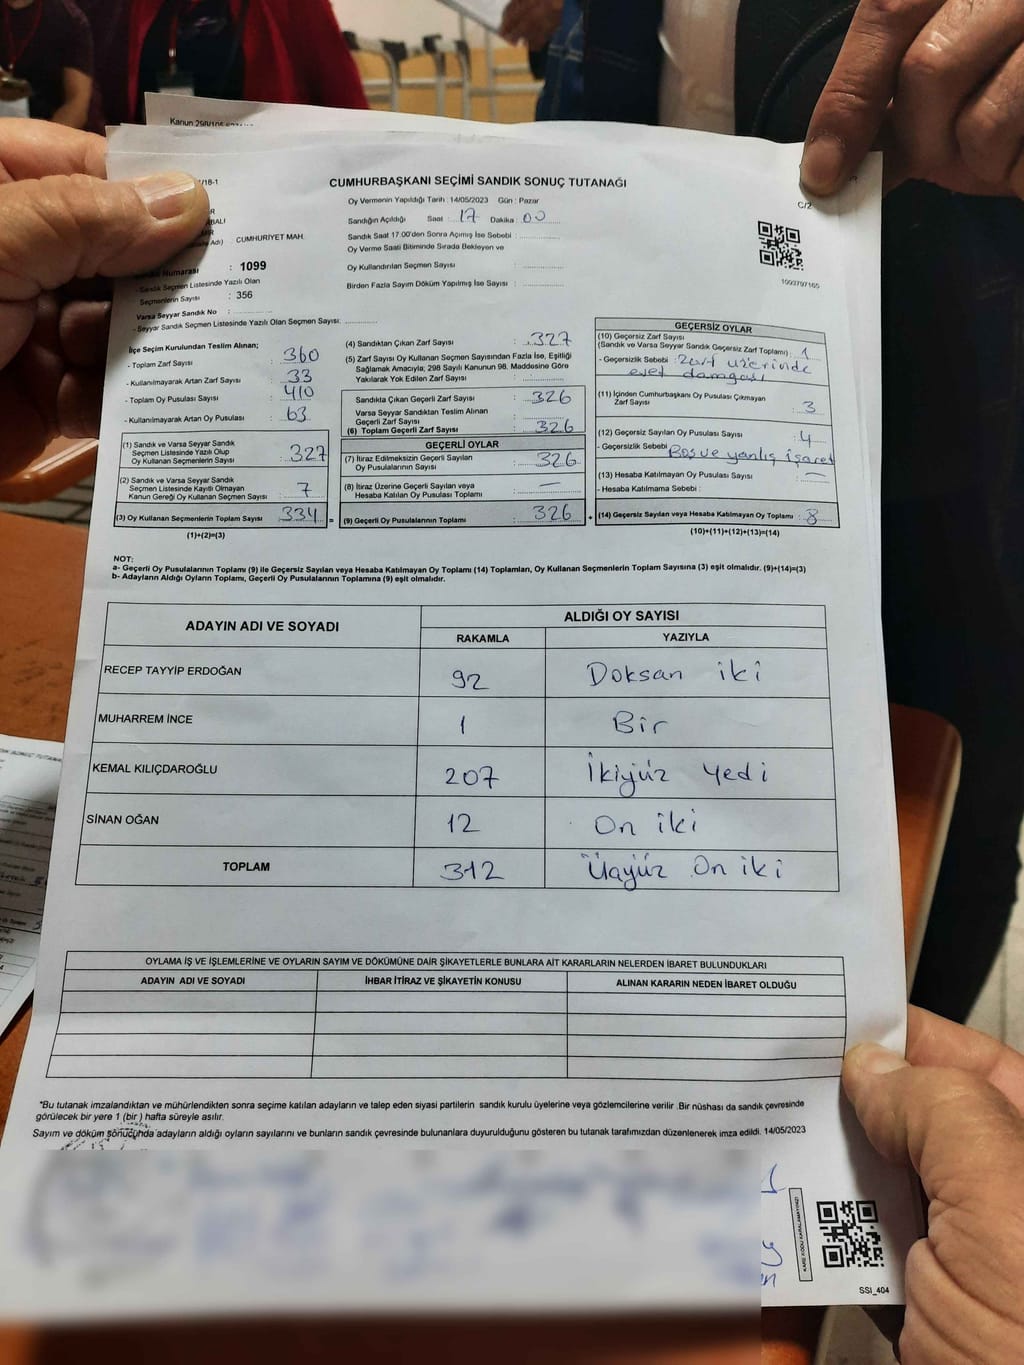 Kanun 298/105
/18-1
CUMHURBAŞKANI SEÇİMİ SANDIK SONUÇ TUTANAĞI
C/2
Oy Vermenin Yapıldığı Tarih : 14/05/2023 Gün : Pazar
Sandığın Açıldığı Saat : 17 Dakika : 00
Sandık Saat 17.00'den Sonra Açımış İse Sebebi :
Oy Verme Saati Bitiminde Sırada Bekleyen ve
Oy Kullandırılan Seçmen Sayısı :
Birden Fazla Sayım Döküm Yapılmış İse Sayısı :
CUMHURİYET MAH.
Numarası : 1099
- Sandık Seçmen Listesinde Yazılı Olan
Seçmenlerin Sayısı : 356
Varsa Seyyar Sandık No :
- Seyyar Sandık Seçmen Listesinde Yazılı Olan Seçmen Sayısı:
1093797165
İlçe Seçim Kurulundan Teslim Alınan;
- Toplam Zarf Sayısı : 360
- Kullanılmayarak Artan Zarf Sayısı : 33
- Toplam Oy Pusulası Sayısı : 410
- Kullanılmayarak Artan Oy Pusulası : 63
(1) Sandık ve Varsa Seyyar Sandık
Seçmen Listesinde Yazılı Olup
Oy Kullanan Seçmenlerin Sayısı : 327
(2) Sandık ve Varsa Seyyar Sandık
Seçmen Listesinde Kayıtlı Olmayan
Kanun Gereği Oy Kullanan Seçmen Sayısı : 7
(3) Oy Kullanan Seçmenlerin Toplam Sayısı : 334 =
(1)+(2)=(3)
(4) Sandıktan Çıkan Zarf Sayısı : 327
(5) Zarf Sayısı Oy Kullanan Seçmen Sayısından Fazla İse, Eşitliği
Sağlamak Amacıyla; 298 Sayılı Kanunun 98. Maddesine Göre
Yakılarak Yok Edilen Zarf Sayısı :
Sandıkta Çıkan Geçerli Zarf Sayısı : 326
Varsa Seyyar Sandıktan Teslim Alınan
Geçerli Zarf Sayısı :
(6) Toplam Geçerli Zarf Sayısı : 326
GEÇERLİ OYLAR
(7) İtiraz Edilmeksizin Geçerli Sayılan
Oy Pusulalarının Sayısı : 326
(8) İtiraz Üzerine Geçerli Sayılan veya
Hesaba Katılan Oy Pusulası Toplamı : —
(9) Geçerli Oy Pusulalarının Toplamı : 326 +
GEÇERSİZ OYLAR
(10) Geçersiz Zarf Sayısı
(Sandık ve Varsa Seyyar Sandık Geçersiz Zarf Toplamı) : 1
- Geçersizlik Sebebi : Zarf üzerinde
evet damgası
(11) İçinden Cumhurbaşkanı Oy Pusulası Çıkmayan
Zarf Sayısı : 3
(12) Geçersiz Sayılan Oy Pusulası Sayısı : 4
- Geçersizlik Sebebi : Boş ve yanlış işaret
(13) Hesaba Katılmayan Oy Pusulası Sayısı : —
- Hesaba Katılmama Sebebi :
(14) Geçersiz Sayılan veya Hesaba Katılmayan Oy Toplamı : 8
(10)+(11)+(12)+(13)=(14)
NOT:
a- Geçerli Oy Pusulalarının Toplamı (9) ile Geçersiz Sayılan veya Hesaba Katılmayan Oy Toplamı (14) Toplamları, Oy Kullanan Seçmenlerin Toplam Sayısına (3) eşit olmalıdır. (9)+(14)=(3)
b- Adayların Aldığı Oyların Toplamı, Geçerli Oy Pusulalarının Toplamına (9) eşit olmalıdır.
ADAYIN ADI VE SOYADI ALDIĞI OY SAYISI
RAKAMLA YAZIYLA
RECEP TAYYİP ERDOĞAN 92 Doksan iki
MUHARREM İNCE 1 Bir
KEMAL KILIÇDAROĞLU 207 İkiyüz yedi
SİNAN OĞAN 12 On iki
TOPLAM 312 Üçyüz On iki
OYLAMA İŞ VE İŞLEMLERİNE VE OYLARIN SAYIM VE DÖKÜMÜNE DAİR ŞİKAYETLERLE BUNLARA AİT KARARLARIN NELERDEN İBARET BULUNDUKLARI
ADAYIN ADI VE SOYADI İHBAR İTİRAZ VE ŞİKAYETİN KONUSU ALINAN KARARIN NEDEN İBARET OLDUĞU
*Bu tutanak imzalandıktan ve mühürlendikten sonra seçime katılan adayların ve talep eden siyasi partilerin sandık kurulu üyelerine veya gözlemcilerine verilir .Bir nüshası da sandık çevresinde
görülecek bir yere 1 (bir ) hafta süreyle asılır.
Sayım ve döküm sonucunda adayların aldığı oyların sayılarını ve bunların sandık çevresinde bulunanlara duyurulduğunu gösteren bu tutanak tarafımızdan düzenlenerek imza edildi. 14/05/2023
KARE KODU KARALAMAYINIZ!
SSI_404